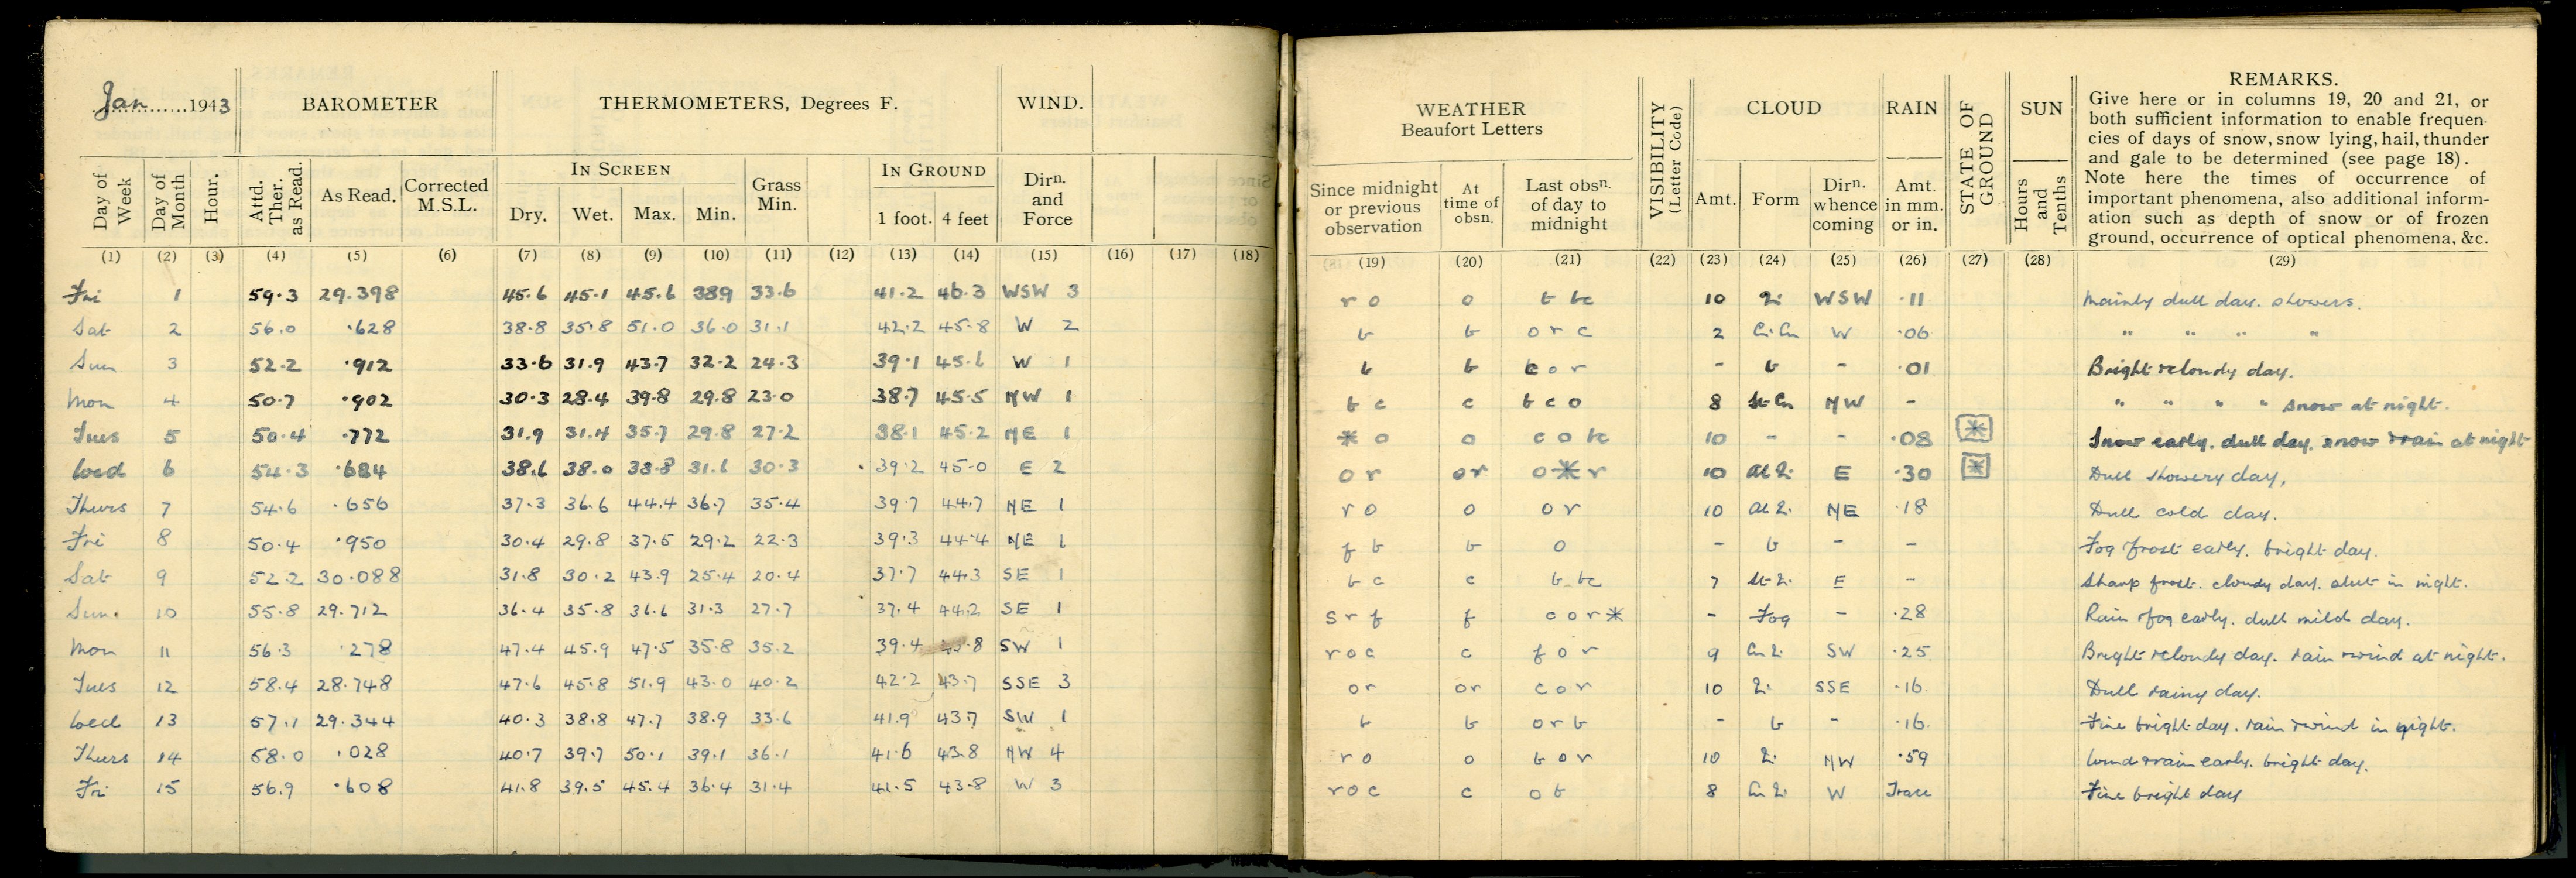 Jan 1943
BAROMETER
THERMOMETERS, Degrees F.
WIND.
Day of Week
Day of Month
Hour.
Attd. Ther. as Read.
As Read.
Corrected M.S.L.
IN SCREEN
Dry. Wet. Max. Min.
Grass Min.
IN GROUND
1 foot. 4 feet
Dirn. and Force
(1) (2) (3) (4) (5) (6) (7) (8) (9) (10) (11) (12) (13) (14) (15) (16) (17) (18)
Fri 1 59.3 29.398 45.6 45.1 45.6 389 33.6 41.2 46.3 WSW 3
Sat 2 56.0 .628 38.8 35.8 51.0 36.0 31.1 42.2 45.8 W 2
Sun 3 52.2 .912 33.6 31.9 43.7 32.2 24.3 39.1 45.6 W 1
Mon 4 50.7 .902 30.3 28.4 39.8 29.8 23.0 38.7 45.5 NW 1
Tues 5 50.4 .772 31.9 31.4 35.7 29.8 27.2 38.1 45.2 NE 1
Wed 6 54.3 .684 38.6 38.0 38.8 31.6 30.3 39.2 45.0 E 2
Thurs 7 54.6 .656 37.3 36.6 44.4 36.7 35.4 39.7 44.7 NE 1
Fri 8 50.4 .950 30.4 29.8 37.5 29.2 22.3 39.3 44.4 NE 1
Sat 9 52.2 30.088 31.8 30.2 43.9 25.4 20.4 37.7 44.3 SE 1
Sun. 10 55.8 29.712 36.4 35.8 36.6 31.3 27.7 37.4 44.2 SE 1
Mon 11 56.3 .278 47.4 45.9 47.5 35.8 35.2 39.4 SW 1
Tues 12 58.4 28.748 47.6 45.8 51.9 43.0 40.2 42.2 43.7 SSE 3
Wed 13 57.1 29.344 40.3 38.8 47.7 38.9 33.6 41.9 43.7 SW 1
Thurs 14 58.0 .028 40.7 39.7 50.1 39.1 36.1 41.6 43.8 NW 4
Fri 15 56.9 .608 41.8 39.5 45.4 36.4 31.4 41.5 43.8 W 3
WEATHER
Beaufort Letters
Since midnight or previous observation
At time of obsn.
Last obsn. of day to midnight
VISIBILITY (Letter Code)
CLOUD
Amt. Form
Dirn. whence coming
RAIN
Amt. in mm. or in.
STATE OF GROUND
SUN
Hours and Tenths
REMARKS.
Give here or in columns 19, 20 and 21, or
both sufficient information to enable frequen-
cies of days of snow, snow lying, hail, thunder
and gale to be determined (see page 18).
Note here the times of occurrence of
important phenomena, also additional inform-
ation such as depth of snow or of frozen
ground, occurrence of optical phenomena, &c.
(19) (20) (21) (22) (23) (24) (25) (26) (27) (28) (29)
r o o b bc 10 WSW .11 Mainly dull day. showers.
b b o r c 2 Ci. Cu W .06 " " " "
b b b c o r - b - .01 Bright & cloudy day.
b c c b c o 8 St Cu NW - " " " " snow at night.
* o o c o bc 10 - - .08 * Snow early. dull day. snow & rain at night
o r o r o * r 10 E .30 * Dull showery day,
r o o o r 10 NE .18 Dull cold day.
f b b o - b - - Fog & frost early. bright day.
b c c b bc 7 E - Sharp frost. cloudy day. in night.
s r f f c o r * - Fog - .28 Rain & fog early. dull mild day.
r o c c f o r 9 SW .25 Bright & cloudy day. rain & wind at night.
o r o r c o r 10 SSE .16 Dull rainy day.
b b o r b - b - .16 Fine bright day. rain & wind in night.
r o o b o r 10 NW .59 Wind & rain early. bright day.
r o c c o b 8 W Trace Fine bright day